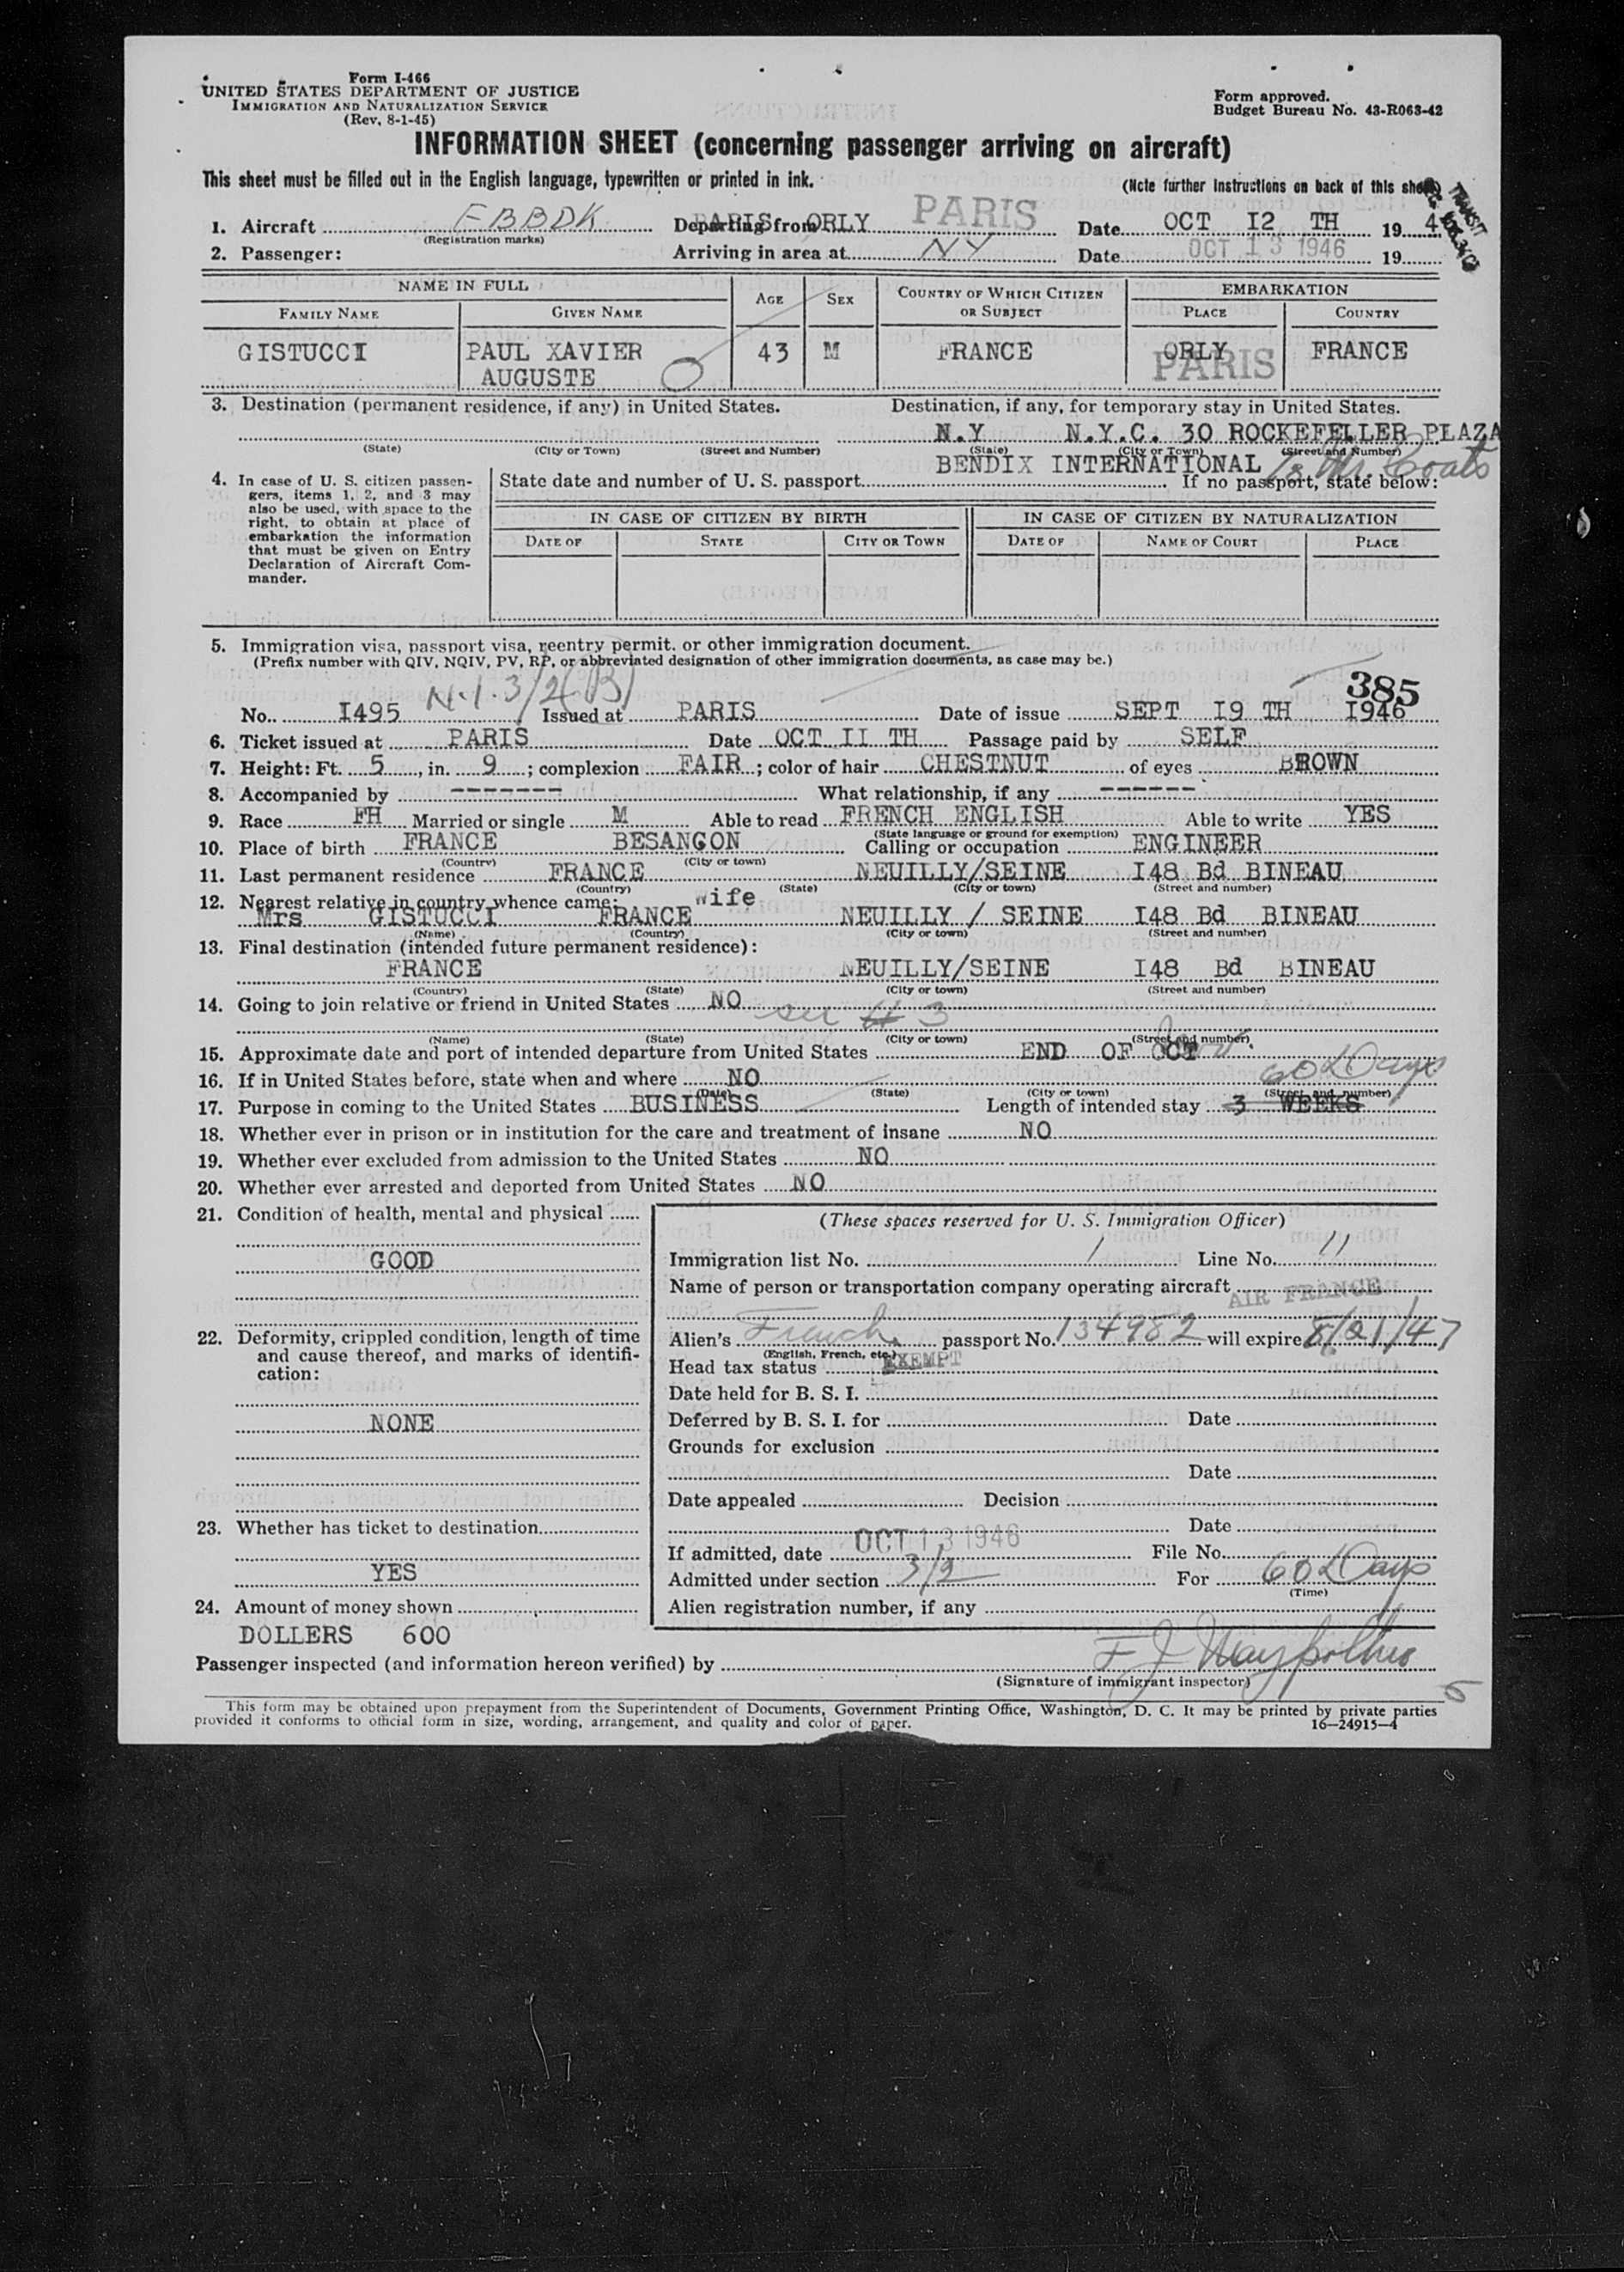 Form I-466
UNITED STATES DEPARTMENT OF JUSTICE
IMMIGRATION AND NATURALIZATION SERVICE
(Rev. 8-1-45)
Form approved.
Budget Bureau No. 43-R063-42
INFORMATION SHEET (concerning passenger arriving on aircraft)
This sheet must be filled out in the English language, typewritten or printed in ink.
(Note further instructions on back of this sheet)
TRANSIT
1. Aircraft FBBDK Departing from PARIS ORLY PARIS Date OCT I2 TH 194
(Registration marks)
2. Passenger: Arriving in area at NY Date OCT 13 1946 19
NAME IN FULL AGE SEX COUNTRY OF WHICH CITIZEN OR SUBJECT EMBARKATION
FAMILY NAME GIVEN NAME PLACE COUNTRY
GISTUCCI PAUL XAVIER 43 M FRANCE ORLY FRANCE
AUGUSTE PARIS
3. Destination (permanent residence, if any) in United States. Destination, if any, for temporary stay in United States.
N.Y N.Y.C. 30 ROCKEFELLER PLAZA
(State) (City or Town) (Street and Number) (State) (City or Town) (Street and Number)
BENDIX INTERNATIONAL Mr. Coats
4. In case of U. S. citizen passengers, items 1, 2, and 3 may also be used, with space to the right, to obtain at place of embarkation the information that must be given on Entry Declaration of Aircraft Commander.
State date and number of U. S. passport If no passport, state below:
IN CASE OF CITIZEN BY BIRTH IN CASE OF CITIZEN BY NATURALIZATION
DATE OF STATE CITY OR TOWN DATE OF NAME OF COURT PLACE
5. Immigration visa, passport visa, reentry permit, or other immigration document.
(Prefix number with QIV, NQIV, PV, RP, or abbreviated designation of other immigration documents, as case may be.)
N.I. 3/2(B) 385
No. I495 Issued at PARIS Date of issue SEPT I9 TH I946
6. Ticket issued at PARIS Date OCT II TH Passage paid by SELF
7. Height: Ft. 5, in. 9; complexion FAIR; color of hair CHESTNUT of eyes BROWN
8. Accompanied by -------- What relationship, if any -------
9. Race FH Married or single M Able to read FRENCH ENGLISH Able to write YES
(State language or ground for exemption)
10. Place of birth FRANCE BESANCON Calling or occupation ENGINEER
(Country) (City or town)
11. Last permanent residence FRANCE NEUILLY/SEINE I48 Bd BINEAU
(Country) (State) (City or town) (Street and number)
12. Nearest relative in country whence came: wife
Mrs GISTUCCI FRANCE NEUILLY / SEINE I48 Bd BINEAU
(Name) (Country) (City or town) (Street and number)
13. Final destination (intended future permanent residence):
FRANCE NEUILLY/SEINE I48 Bd BINEAU
(Country) (State) (City or town) (Street and number)
14. Going to join relative or friend in United States NO see # 3
(Name) (State) (City or town) (Street and number)
15. Approximate date and port of intended departure from United States END OF OCT
16. If in United States before, state when and where NO 60 Days
(Date) (State) (City or town) (Street and number)
17. Purpose in coming to the United States BUSINESS Length of intended stay 3 WEEKS
18. Whether ever in prison or in institution for the care and treatment of insane NO
19. Whether ever excluded from admission to the United States NO
20. Whether ever arrested and deported from United States NO
21. Condition of health, mental and physical
GOOD
22. Deformity, crippled condition, length of time and cause thereof, and marks of identification:
NONE
23. Whether has ticket to destination
YES
24. Amount of money shown
DOLLERS 600
(These spaces reserved for U. S. Immigration Officer)
Immigration list No. 1 Line No. 11
Name of person or transportation company operating aircraft AIR FRANCE
Alien's French passport No. 134982 will expire 8/21/47
(English, French, etc.)
Head tax status EXEMPT
Date held for B. S. I.
Deferred by B. S. I. for Date
Grounds for exclusion
Date
Date appealed Decision
Date
If admitted, date OCT 13 1946 File No.
Admitted under section 3/2 For 60 Days
(Time)
Alien registration number, if any
Passenger inspected (and information hereon verified) by
(Signature of immigrant inspector)
5
This form may be obtained upon prepayment from the Superintendent of Documents, Government Printing Office, Washington, D. C. It may be printed by private parties
provided it conforms to official form in size, wording, arrangement, and quality and color of paper. 16—24915-4